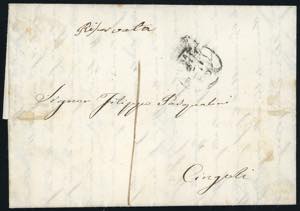 Riservata
1
Signor Filippo Pasqualini
Cingoli